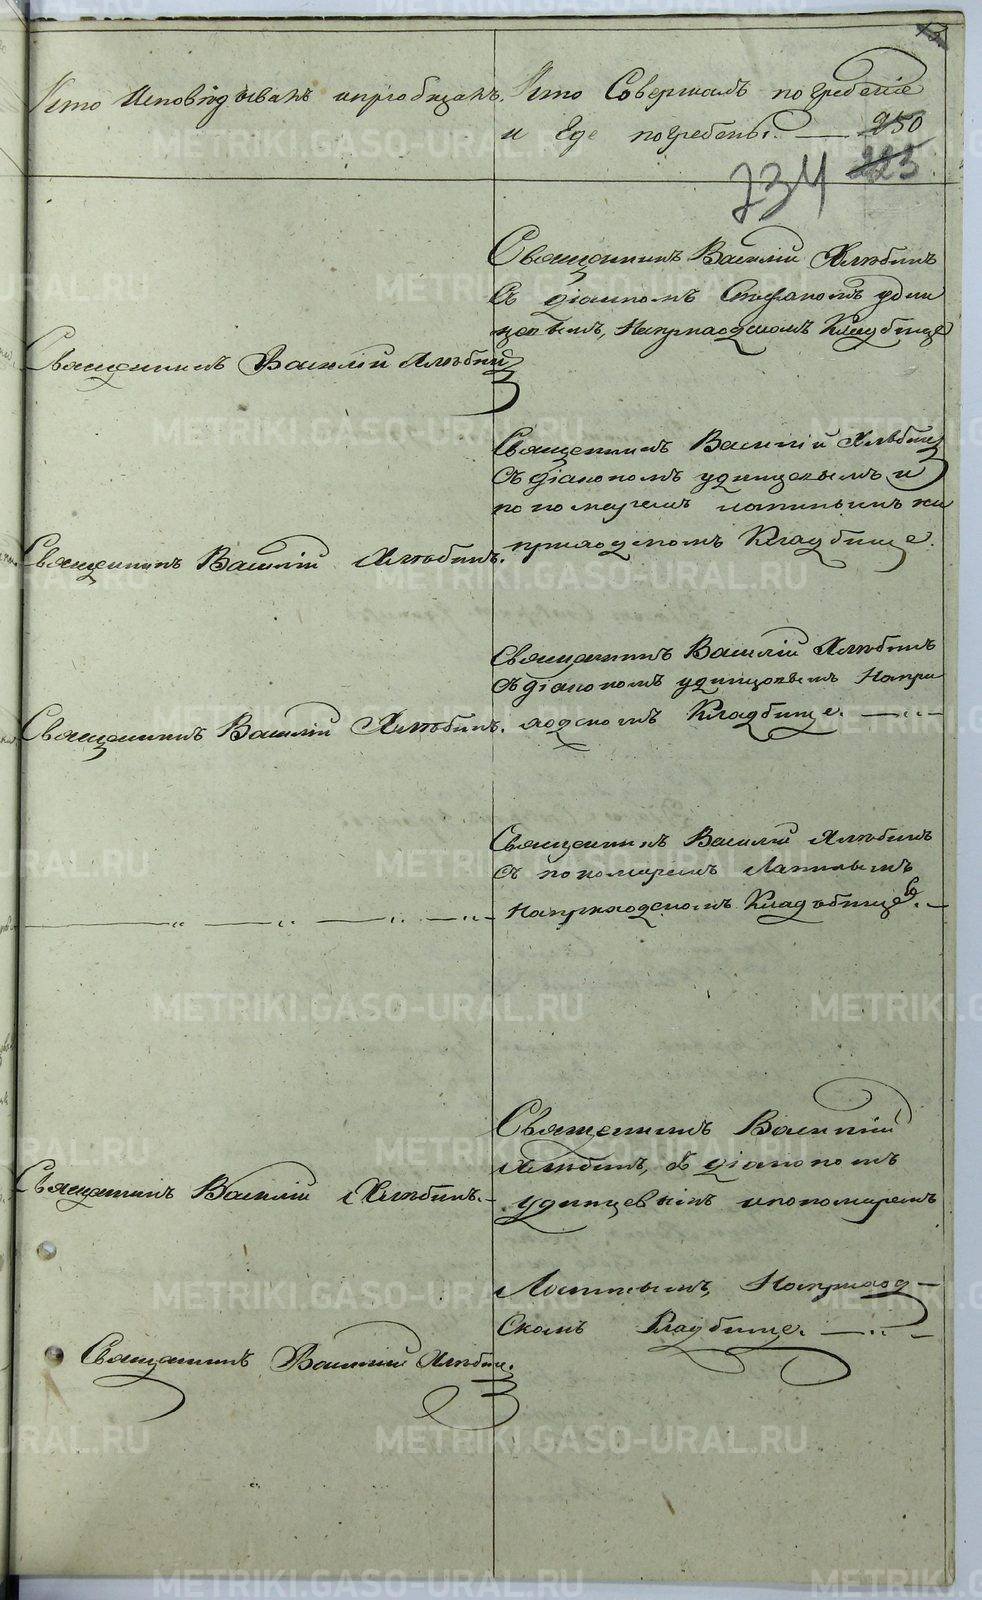 Кто Исповѣдывалъ и пріобщалъ.
Кто Совершалъ погребеніе
и Где погребены. 250
734 223
Священникъ Василій Хлѣбинъ
Съ діакономъ Стефаномъ удин
цовымъ, На приходскомъ Кладбище
Священникъ Василій Хлѣбин
Священникъ Василій Хлѣбин
Съ діакономъ удинцовымъ и
пономаремъ Лапинымъ на
приходскомъ Кладбище.
Священникъ Василій Хлѣбинъ.
Священникъ Василій Хлѣбинъ
Съ діакономъ удинцовымъ На при
ходскомъ Кладбище.
Священникъ Василій Хлѣбинъ.
Священникъ Василій Хлѣбинъ
Съ пономаремъ Лапинымъ
На приходскомъ Кладъбище.
Священникъ Василій
Хлѣбинъ, Съ діакономъ
удинцевымъ и пономаремъ
Лапинымъ, На приход
Скомъ Кладбище.
Священникъ Василій Хлѣбинъ.
Священникъ Василій Хлѣбин.
METRIKI.GASO-URAL.RU